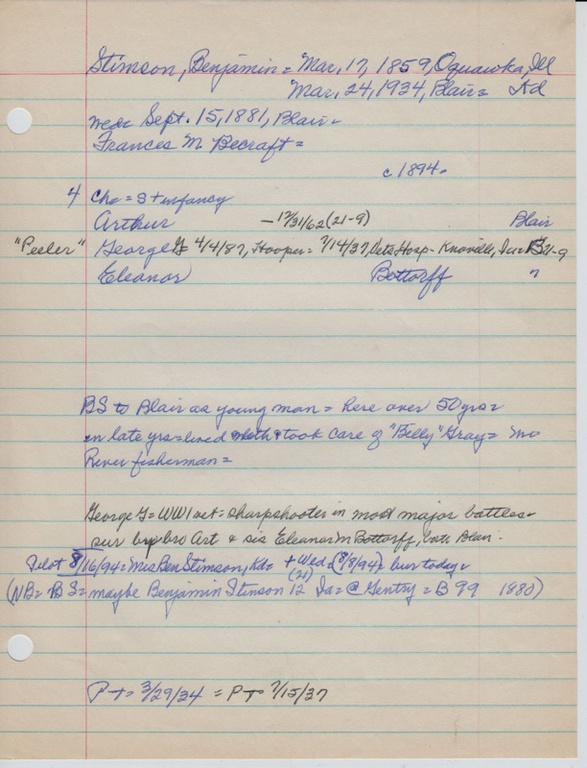 Stimson, Benjamin = Mar, 17, 1859, Oquawka, Ill
Mar, 24, 1934, Blair = Kd
wed = Sept. 15, 1881, Blair =
Frances M Becraft =
c 1894.
4 Chn = s + infancy
Arthur – 12/31/62 (21-9) Blair
"Peeler" George G 4/4/87, Hooper = 7/14/37, Vets Hosp - Knoxville, Ia = 21-9
Eleanor Bottorff "
BS to Blair as young man = here over 50 yrs =
in late yrs = lived with + took care of "Billy" Gray = Mo
River fisherman =
George G = WW1 vet = sharpshooter in most major battles =
sur by bro Art & sis Eleanor M Bottorff, both Blair.
Pilot 8/16/94 = Mrs Ben Stimson, Kd = + Wed = (8/8/94) = bur today =
(NB = BS = maybe Benjamin Stinson (21) 12 Ia = @ Gentry = B 99 1880)
P T = 3/29/34 = P T = 7/15/37